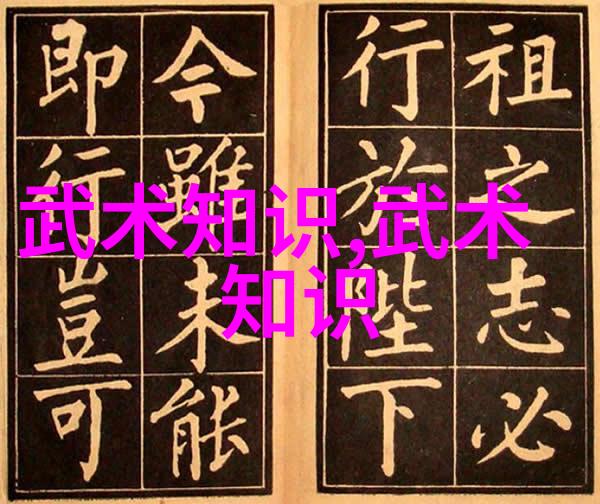 祖之志必
行於陛下
今雖未能
即行豈可
武术知识,武术
知识